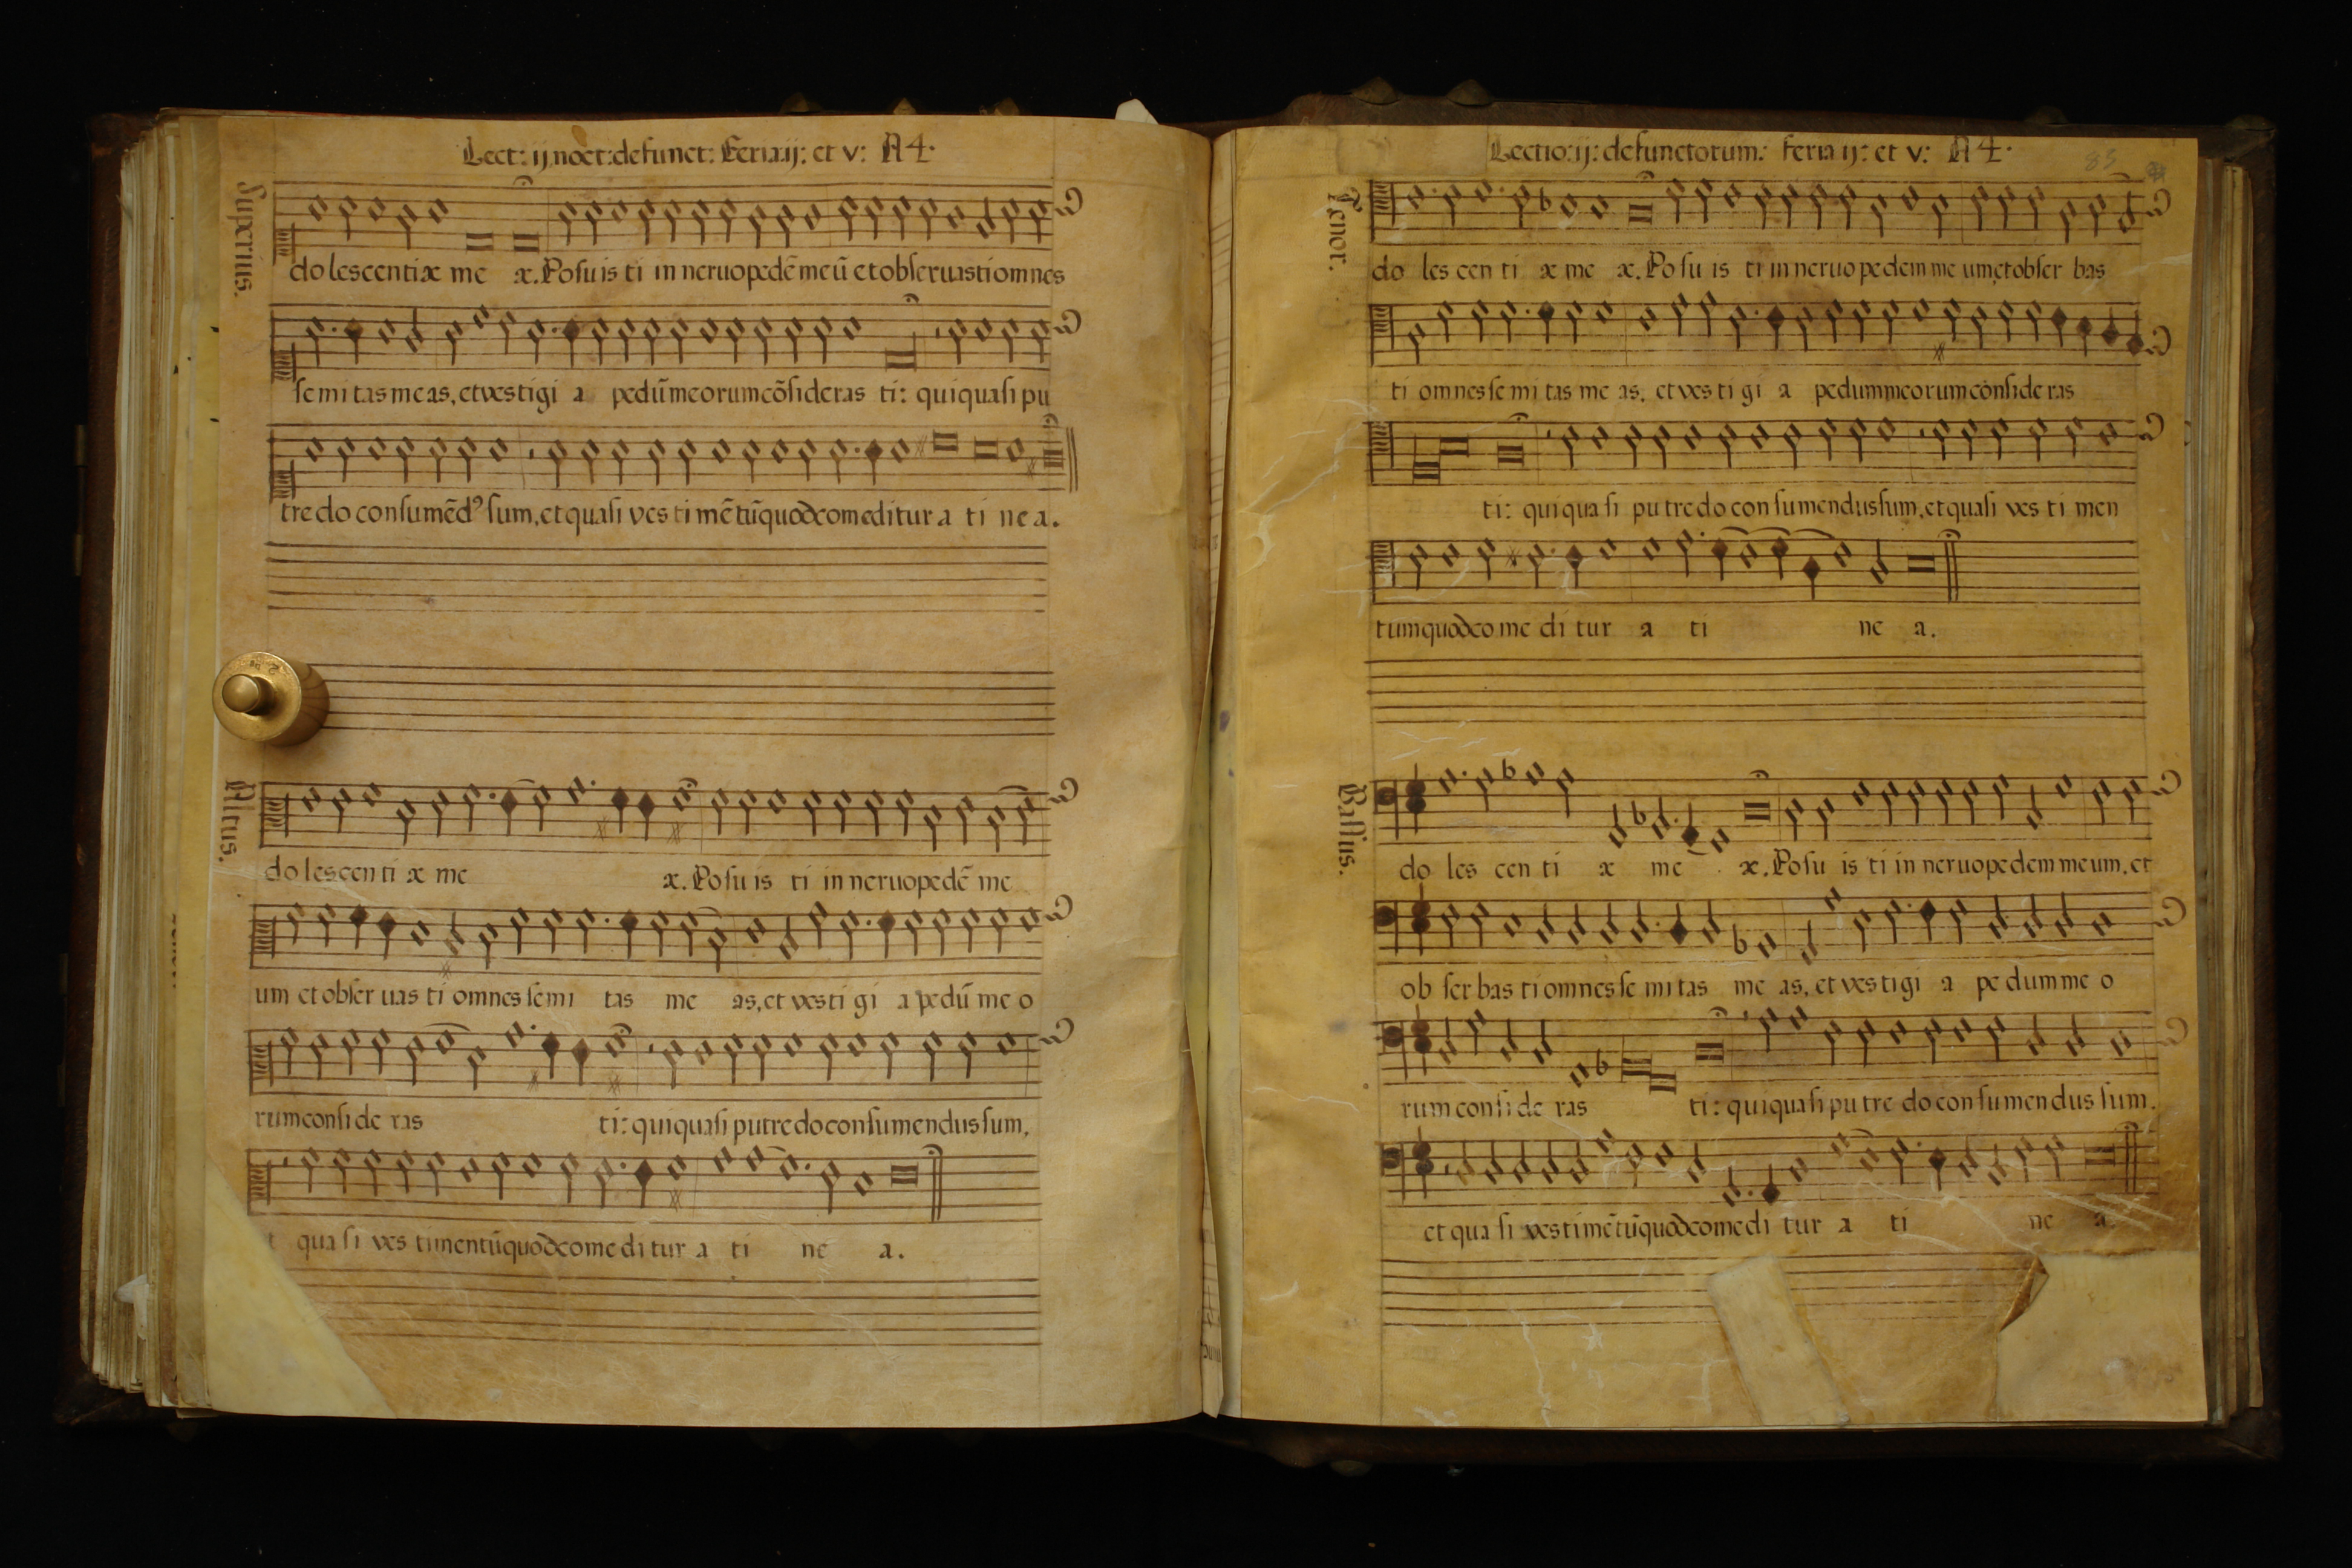 Lect: ij noct: defunct: Feria ij: et v: A4.
Superius.
do lescentiæ me æ. Posuisti in neruo pedẽ meũ et obseruasti omnes
semitas meas, et vestigi a pedũ meorum cõsideras ti: qui quasi pu
tredo consumẽdꝰ sum, et quasi vestimẽtũ quod comeditur a ti ne a.
Altus.
do lescenti æ me æ. Posuis ti in neruo pedẽ me
um et obseruas ti omnes semi tas me as, et vesti gi a pedũ me o
rum conside ras ti: qui quasi putredo consumendus sum,
t quasi ves timentũ quod comeditur a ti ne a.
Lectio: ij: defunctorum: feria ij: et v: A4.
83
Tenor.
do les cen ti æ me æ. Posu is ti in neruo pedem me um, et obser bas
ti omnes semi tas me as, et ves ti gi a pedum meorum consideras
ti: qui quasi putredo consumendus sum, et quasi ves ti men
tum quod comeditur a ti ne a.
Bassus.
do les cen ti æ me æ. Posu is ti in neruo pedem meum, et
obser bas ti omnes se mi tas me as, et ves ti gi a pedum me o
rum consi de ras ti: qui quasi pu tre do consumen dus sum.
et quasi vestimẽtũ quod comedi tur a ti ne a.